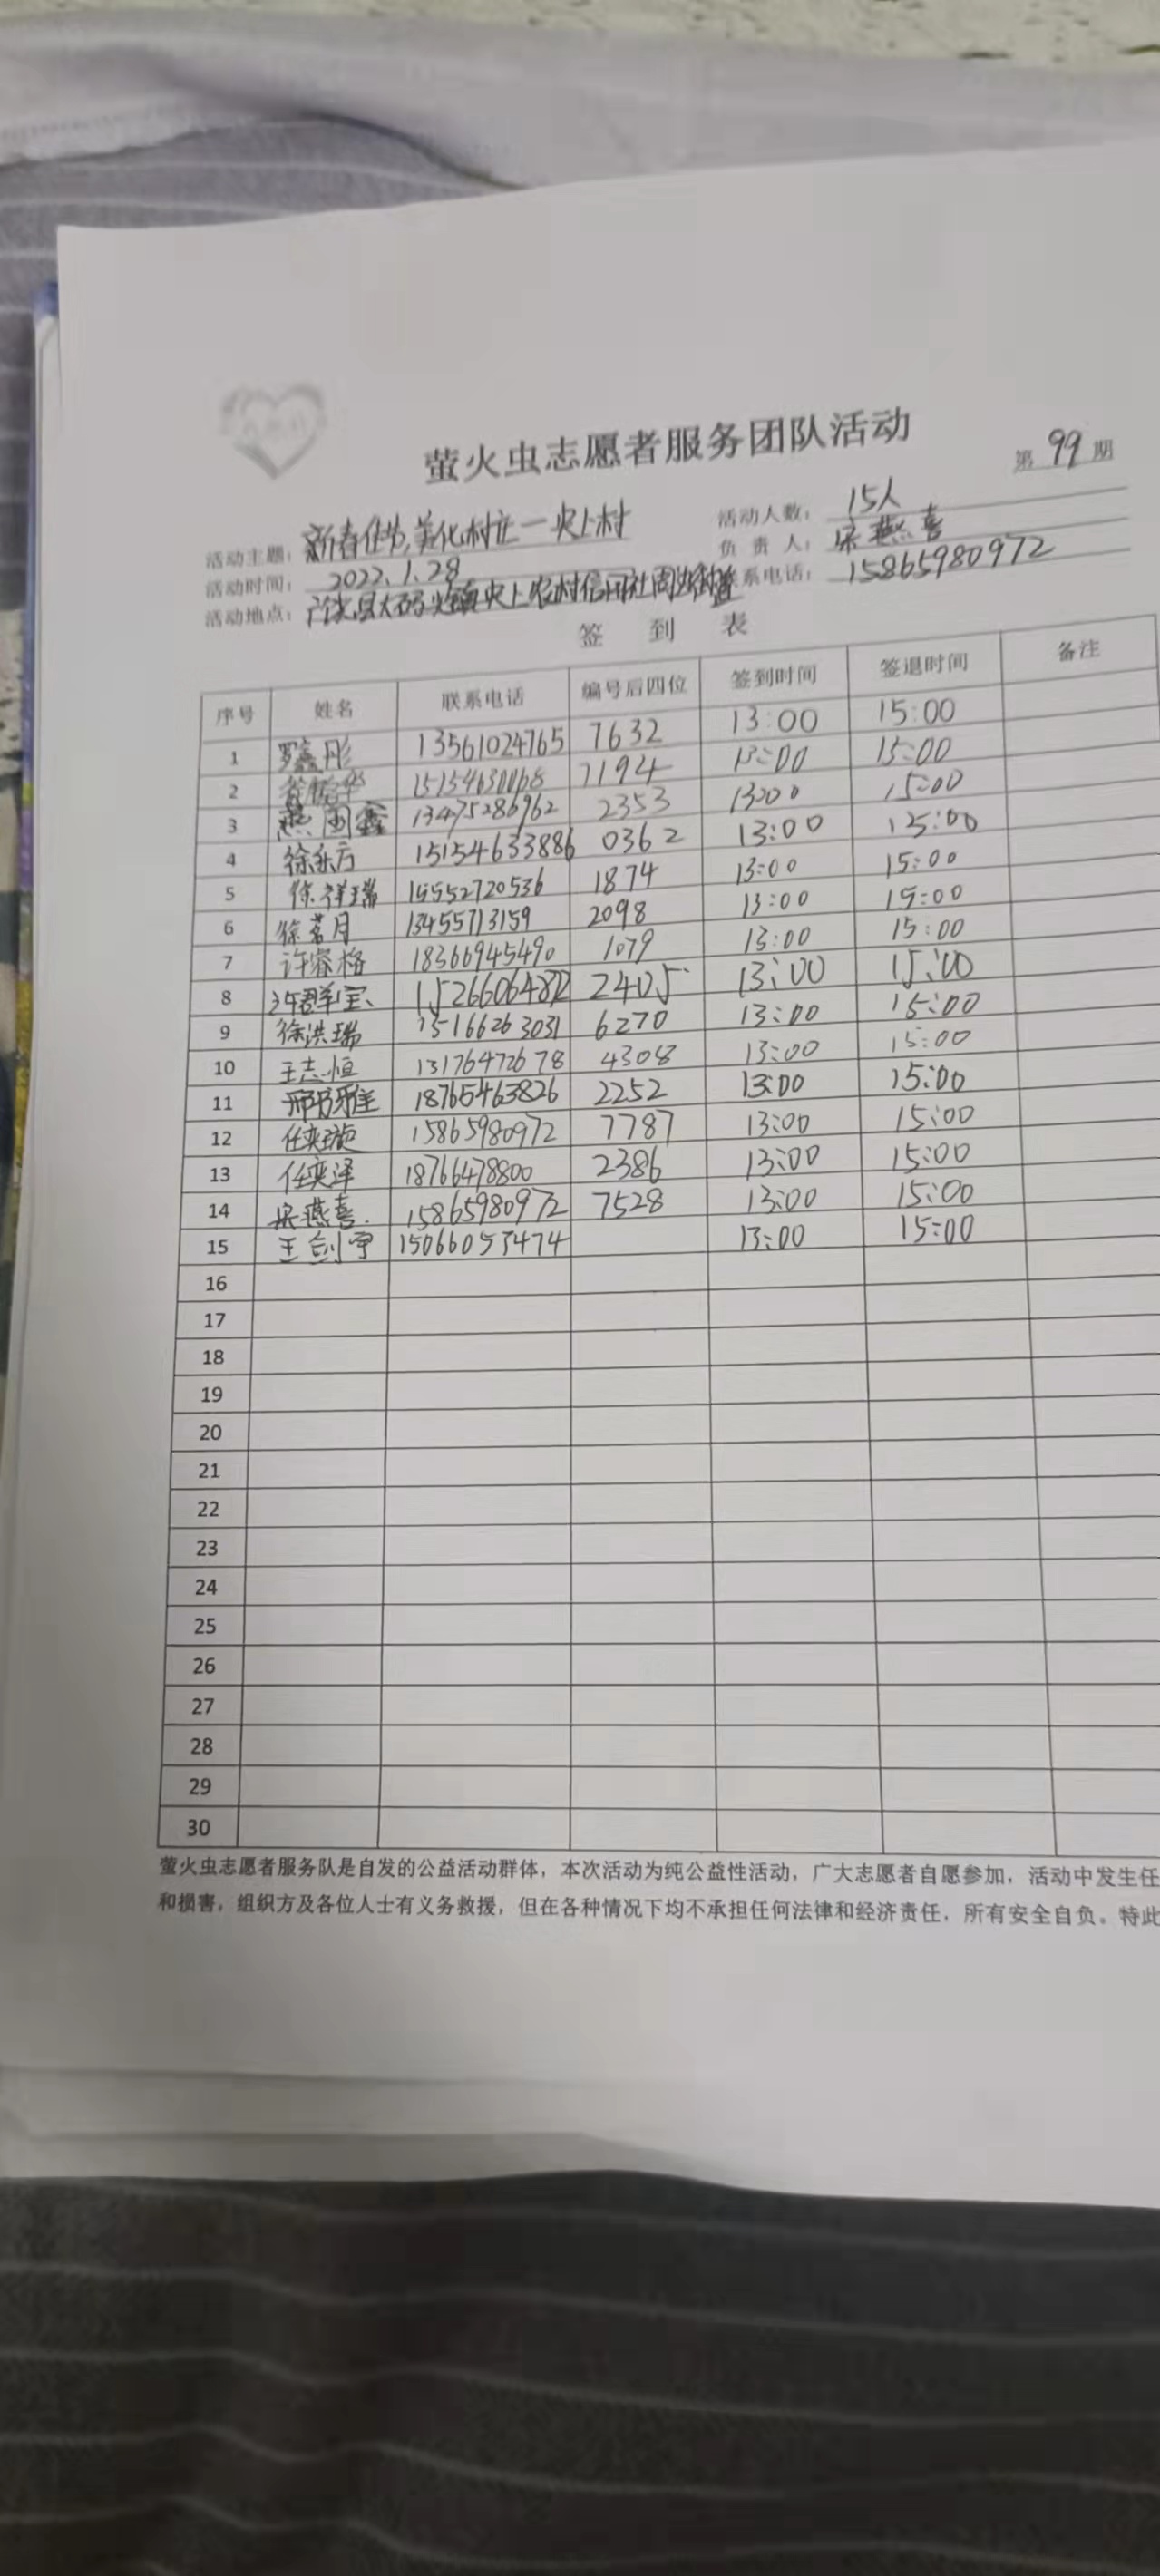 萤火虫志愿者服务团队活动
第 99 期
活动主题： 新春佳节,美化村庄一央上村
活动人数： 15人
活动时间： 2022.1.28
负 责 人： 宋燕喜
活动地点： 央上农村信用社周边街道
联系电话： 15865980972
签 到 表
序号 姓名 联系电话 编号后四位 签到时间 签退时间 备注
1 罗鑫彤 13561024765 7632 13:00 15:00
2 7194 13:00 15:00
3 13475286962 2353 1300 15:00
4 徐东方 15154633886 0362 13:00 15:00
5 徐祥瑞 15552720536 1874 13:00 15:00
6 徐茗月 13455713159 2098 13:00 15:00
7 许睿格 18366945490 1079 13:00 15:00
8 2405 13:00 15:00
9 徐洪瑞 15166263031 6270 13:00 15:00
10 王志恒 13176472678 4308 13:00 15:00
11 邢书雅 18765463826 2252 13:00 15:00
12 任奕璇 15865980972 7787 13:00 15:00
13 任奕泽 18766478800 2386 13:00 15:00
14 宋燕喜. 15865980972 7528 13:00 15:00
15 王剑宇 15066053474 13:00 15:00
16
17
18
19
20
21
22
23
24
25
26
27
28
29
30
萤火虫志愿者服务队是自发的公益活动群体，本次活动为纯公益性活动，广大志愿者自愿参加，活动中发生任
和损害，组织方及各位人士有义务救援，但在各种情况下均不承担任何法律和经济责任，所有安全自负。特此